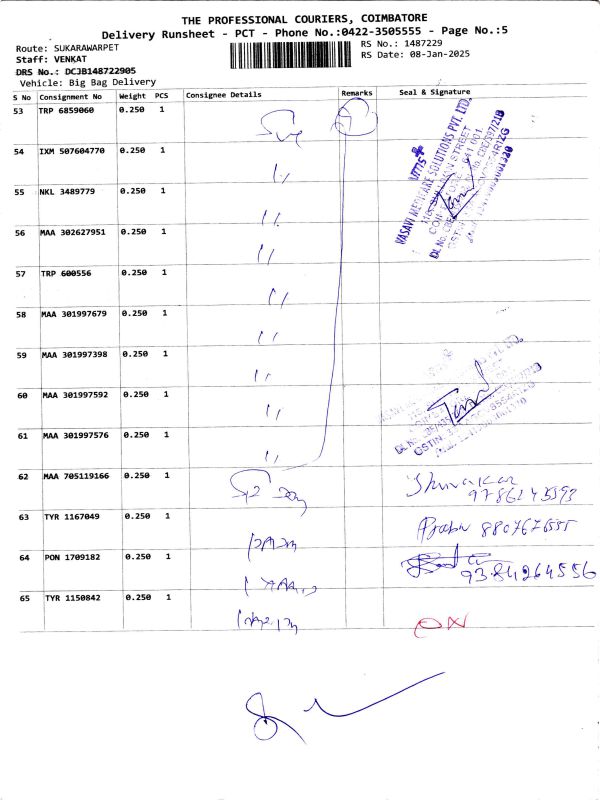 THE PROFESSIONAL COURIERS, COIMBATORE
Delivery Runsheet - PCT - Phone No.:0422-3505555 - Page No.:5
Route: SUKARAWARPET
RS No.: 1487229
Staff: VENKAT
RS Date: 08-Jan-2025
DRS No.: DCJB148722905
Vehicle: Big Bag Delivery
S No Consignment No Weight PCS Consignee Details Remarks Seal & Signature
53 TRP 6859060 0.250 1
54 IXM 507604770 0.250 1
55 NKL 3489779 0.250 1
56 MAA 302627951 0.250 1
57 TRP 600556 0.250 1
58 MAA 301997679 0.250 1
59 MAA 301997398 0.250 1
60 MAA 301997592 0.250 1
61 MAA 301997576 0.250 1
62 MAA 705119166 0.250 1
63 TYR 1167049 0.250 1
64 PON 1709182 0.250 1
9384264556
65 TYR 1150842 0.250 1